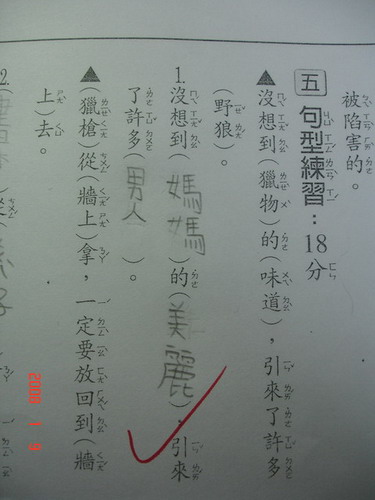 被陷害的。
五 句型練習：18分
▲沒想到(獵物)的(味道)，引來了許多
(野狼)。
1.沒想到(媽媽)的(美麗)，引來
了許多(男人)。
▲(獵槍)從(牆上)拿，一定要放回到(牆
上)去。
2.
2008 1 9